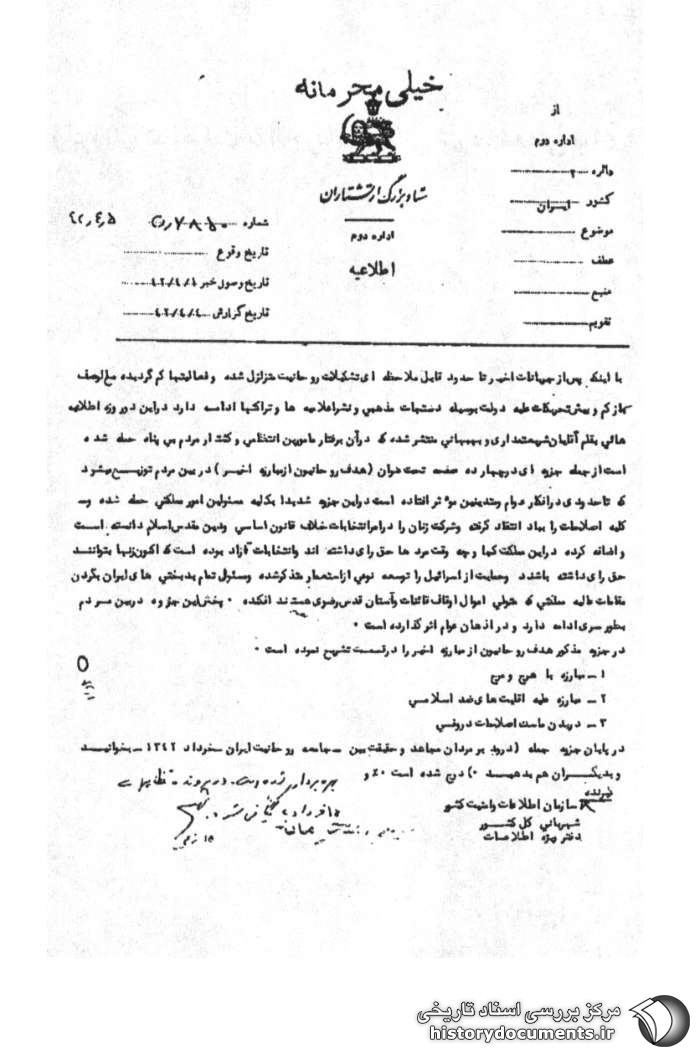 خیلی محرمانه
از
اداره دوم
دائره ۲
کشور ایران
موضوع
عطف
منبع
تقویم
ستاد بزرگ ارتشتاران
اداره دوم
اطلاعیه
شماره
تاریخ وقوع
تاریخ وصول خبر ۴۲/۴/۱
تاریخ گزارش ۴۲/۴/۴
با اینکه پس از جریانات اخیر تا حدود قابل ملاحظه ای تشکیلات روحانیت متزلزل شده و فعالیتها کم گردیده مع الوصف
باز کم و بیش تحریکات علیه دولت بوسیله دستجات مذهبی و نشر اعلامیه ها و تراکتها ادامه دارد در این دو روزه اطلاعیه
هائی بقلم آقایان شریعتمداری و بهبهانی منتشر شده که در آن برفتار مامورین انتظامی و کشتار مردم بی پناه حمله شده
است از جمله جزوه ای در چهارده صفحه تحت عنوان (هدف روحانیون از مبارزه اخیر) در بین مردم توزیع میشود
که تا حدودی در افکار عوام و متدینین موثر افتاده است در این جزوه شدیدا بکلیه مسئولین امور مملکتی حمله شده و
کلیه اصلاحات را بباد انتقاد گرفته و شرکت زنان را در امر انتخابات خلاف قانون اساسی و دین مقدس اسلام دانسته است
و اضافه کرده در این مملکت کجا و چه وقت مرد ها حق رای داشته اند و انتخابات آزاد بوده است که اکنون زنها بتوانند
حق رای داشته باشند و حمایت از اسرائیل را توسعه نوعی از استعمار متذکر شده و مسئول تمام بدبختی های ایران بگردن
مقامات عالیه مملکتی که متولی اموال اوقاف قائنات و آستان قدس رضوی هستند افکنده ۰ پخش این جزوه در بین مردم
بطور سری ادامه دارد و در اذهان عوام اثر گذارده است ۰
در جزوه مذکور هدف روحانیون از مبارزه اخیر را در قسمت تشریح نموده است ۰
۱ - مبارزه با هرج و مرج
۲ - مبارزه علیه اقلیت های ضد اسلامی
۳ - دریدن ماسک اصلاحات دروغی
در پایان جزوه جمله (درود بر مردان مجاهد و حقیقت بین - جامعه روحانیت ایران - خرداد ۱۳۴۲ - بخوانید
و بدیگران هم بدهید ۰) درج شده است
گیرنده
سازمان اطلاعات و امنیت کشور
شهربانی کل کشور
دفتر ویژه اطلاعات
مرکز بررسی اسناد تاریخی
historydocuments.ir